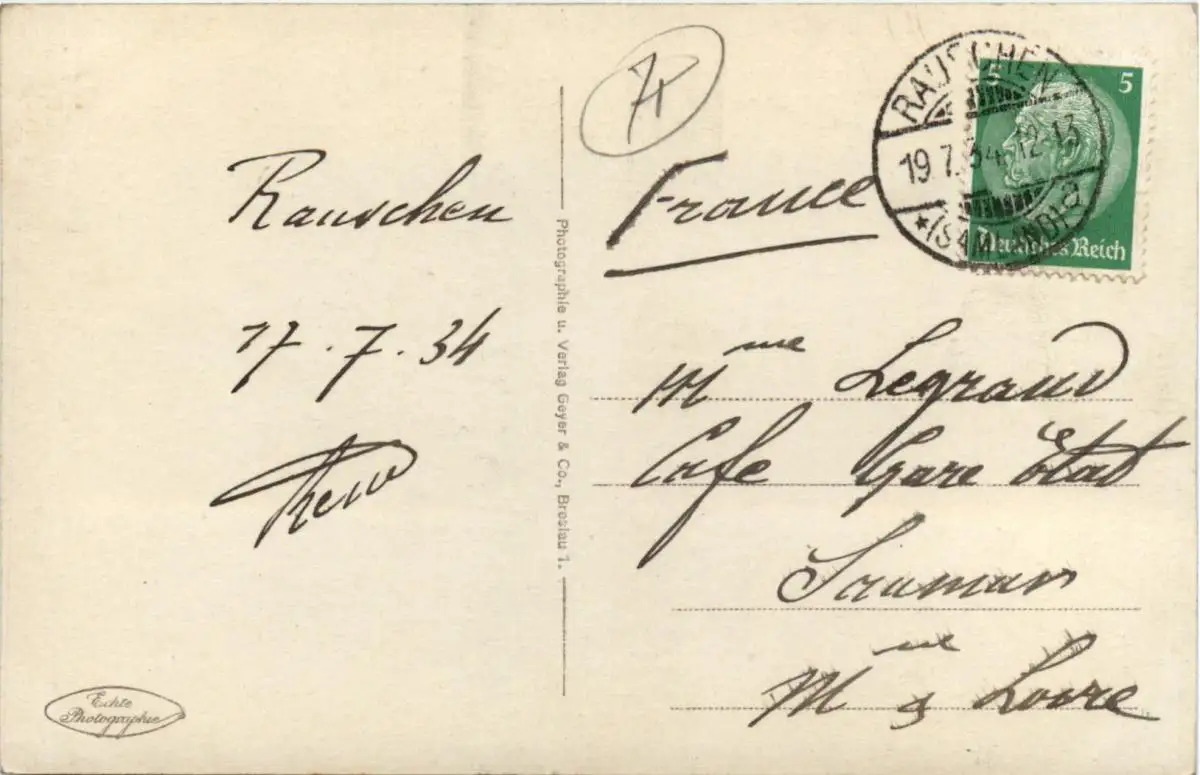 Rauschen
17.7.34
Photographie u. Verlag Geyer & Co., Breslau 1.
Echte
Photographie
RAUSCHEN
19 7. 34. 12-13
* (SAMLAND) a
5 5
Deutsches Reich
France
Mme Legrand
Cafe Gare État
Saumur
M & Loire